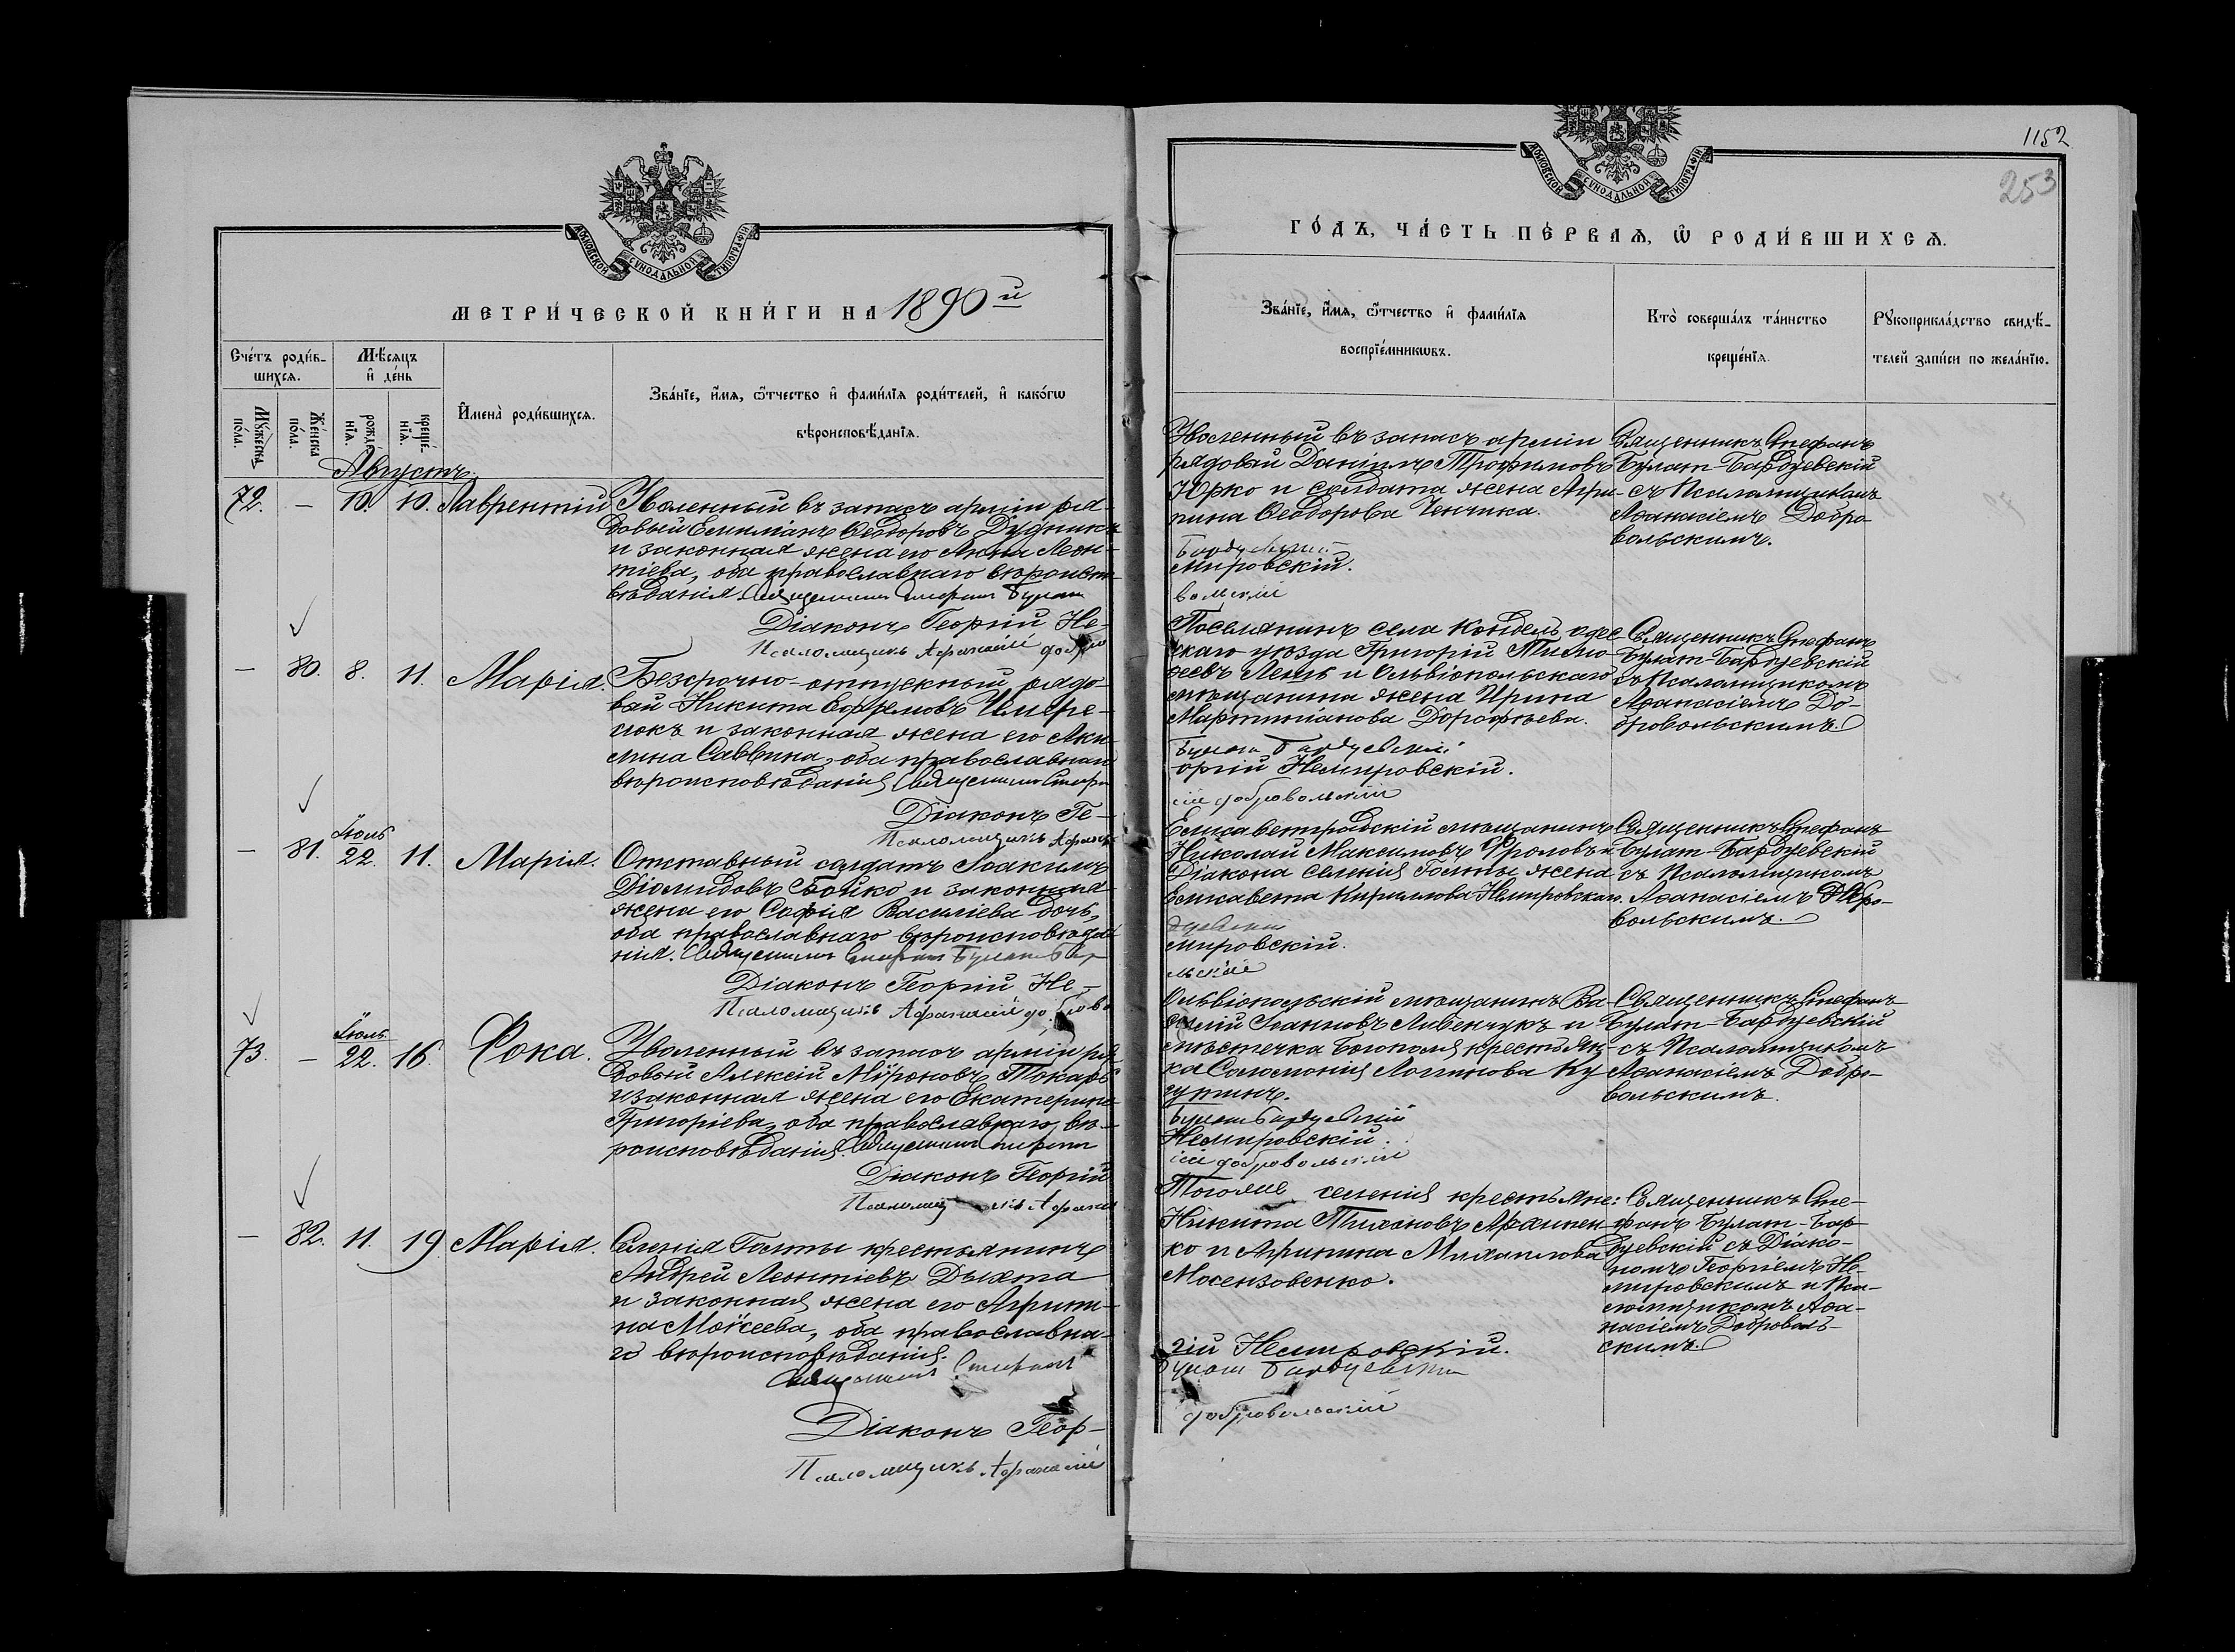 1152
253
МОСКОВСКОЙ СУНОДАЛЬНОЙ ТИПОГРАФІИ
МОСКОВСКОЙ СУНОДАЛЬНОЙ ТИПОГРАФІИ
МЕТРИ́ЧЕСКОЙ КНИ́ГИ НА 1890й
Сче́тъ роди́в-
шихся.
Мѣ́сяцъ
и҆ де́нь
Му́жеска
по́ла.
Же́нска
по́ла.
рожде́-
нїя.
креще́-
нїя.
И҆мена̀ роди́вшихся.
Зва́нїе, и҆́мя, ѿтчество и҆ фами́лїя роди́телей, и҆ како́гѡ
вѣроисповѣ́данїя.
Августъ.
72. — 10. 10. Лаврентій
Уволенный въ запасъ арміи ря-
довый Емиліанъ Ѳеодоровъ Дудникъ
и законная жена его Анна Леон-
тіева, оба православнаго вѣроиспо-
вѣданія. Священникъ Стефанъ Булат
Діаконъ Георгій Не-
Псаломщикъ Афанасій добро
— 80. 8. 11. Марія.
Безсрочно-отпускный рядо-
вый Никита Ефремовъ
и законная жена его Аки-
лина Саввина, оба православнаго
вѣроисповѣданія Священникъ Стефан
Діаконъ Ге-
Псаломщикъ Афанас
— 81. Іюль 22. 11. Марія.
Отставный солдатъ Іоакимъ
Діомидовъ Бойко и законная
жена его Софія Василіева дочь,
оба православнаго вѣроисповѣда-
нія. Священникъ Стефанъ Булатъ Бар
Діаконъ Георгій Не-
Псаломщикъ Афанасій доброво
73. — Іюль 22. 16. Фока.
Уволенный въ запасъ арміи ря-
довый Алексій Мѵроновъ Токарь
и законная жена его Екатерина
Григоріева, оба православнаго вѣ-
роисповѣданія. Священникъ Стефанъ
Діаконъ Георгій
Псаломщикъ Афанас
— 82. 11. 19. Марія.
Селенія Голты крестьянинъ
Андрей Леонтіевъ Дыхта
и законная жена его Агрипи-
на Моѵсеева, оба православна-
го вѣроисповѣданія.
Священникъ Стефанъ
Діаконъ Геор-
Псаломщикъ Афанасій
ГО́ДЪ, ЧА́СТЬ ПЕ́РВАЯ, Ѡ҆ РОДИ́ВШИХСЯ.
Зва́нїе, и҆́мя, ѿтчество и҆ фами́лїя
воспрїе́мникѡвъ.
Кто̀ соверша́лъ та́инство
креще́нїя.
Рꙋкоприкла́дство свидѣ́-
телей за́писи по жела́нїю.
Уволенный въ запасъ арміи
рядовый Даніилъ Трофимовъ
Юрко и солдата жена Агри-
пина Ѳеодорова Ченчика.
Бардуевскій
мировскій.
вольскій
Священникъ Стефанъ
Булат-Бардуевскій
съ Псаломщикомъ
Аѳанасіемъ Добро-
вольскимъ.
Поселянинъ села Кондель, одес-
скаго уѣзда Григорій Тимо-
ѳеевъ и Ольвіопольскаго
мѣщанина жена Ирина
Мартиніанова Дорофѣева.
Булатъ Бардуевскій
оргій Немировскій.
сій добровольскій
Священникъ Стефанъ
Булат-Бардуевскій
съ Псаломщикомъ
Аѳанасіемъ До-
бровольскимъ.
Елисаветградскій мѣщанинъ
Николай Максимовъ Фроловъ и
Діакона селенія Голты жена
Елисавета Кириллова Немировская.
дуевскій
мировскій.
льскій
Священникъ Стефанъ
Булат-Бардуевскій
съ Псаломщикомъ
Аѳанасіемъ Добро-
вольскимъ.
Ольвіопольскій мѣщанинъ Ва-
силій Іоанновъ Ливенчукъ и
мѣстечка Богополя крестьян-
ка Соломонія Логинова Ку
Булатъ Бардуевскій
Немировскій.
сій добровольскій
Священникъ Стефанъ
Булат-Бардуевскій
съ Псаломщикомъ
Аѳанасіемъ Добро-
вольскимъ.
Тогоже селенія крестьяне:
Никита Тихоновъ Архипен-
ко и Агрипина Михаилова
Мосензовенко.
гій Немировскій.
Булатъ Бардуевскій
добровольскій
Священникъ Сте-
фанъ Булат-Бар-
дуевскій съ Діако-
номъ Георгіемъ Не-
мировскимъ и Пса-
ломщикомъ Аѳа-
насіемъ Доброволь-
скимъ.